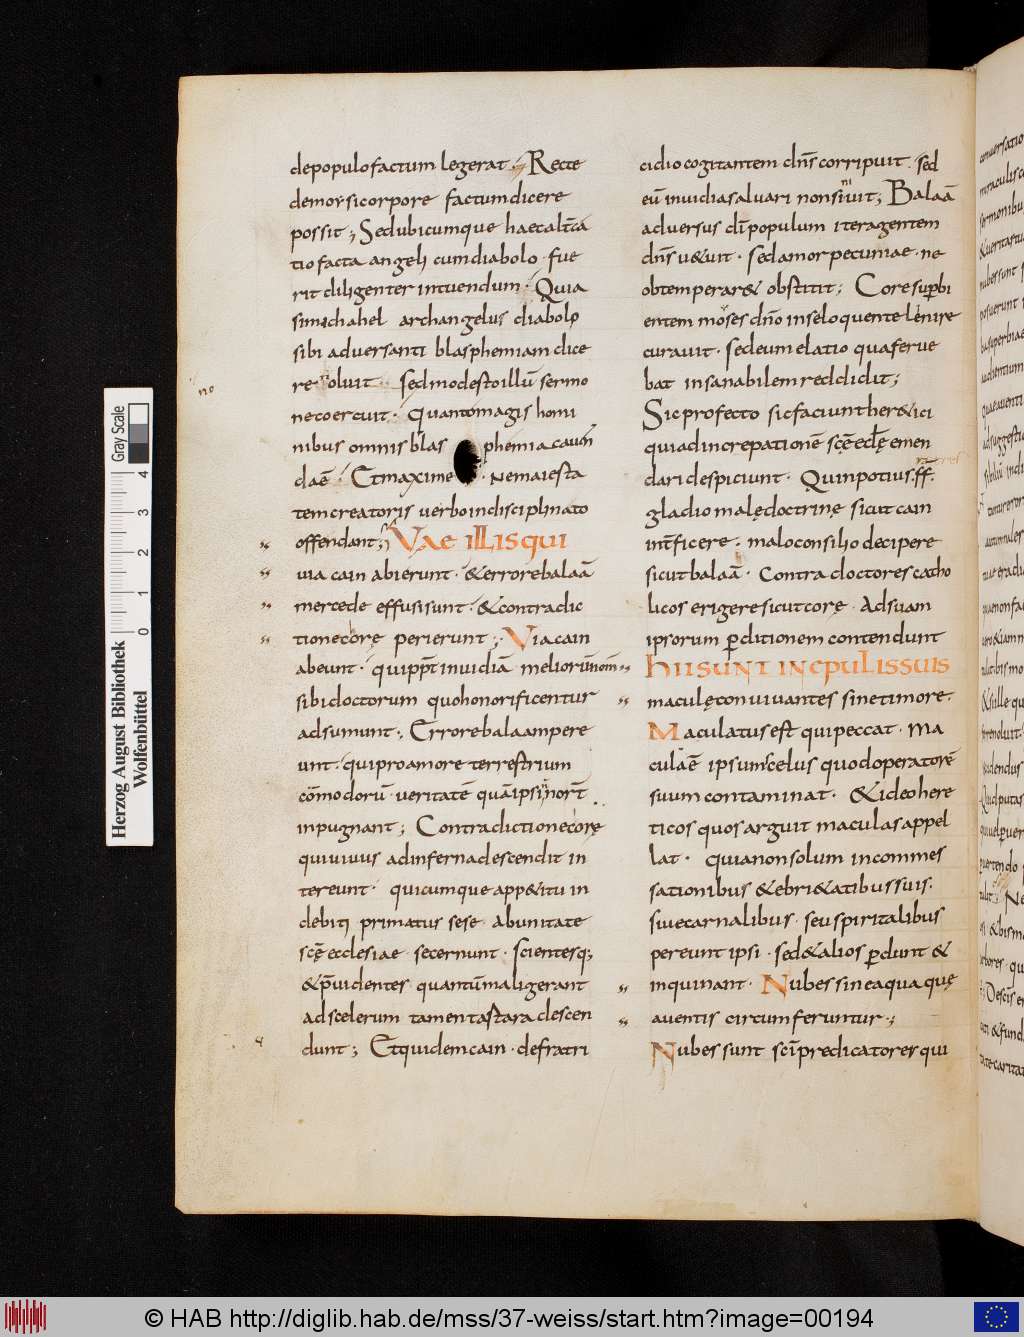 depopulo factum legerat. Recte
demoysi corpore factum dicere
possit; Sed ubicumque haec alt̄ca
tio facta angeli cum diabolo. fue
rit diligenter intuendum. Quia
si michahel archangelus diabolo
sibi adversanti blasphemiam dice
re noluit. sed modesto illū sermo
ne coercuit. Quanto magis homi
nibus omnis blas phemia caven
da ē. Et maxime. Ne maiesta
tem creatoris verbo indisciplinato
offendant; Vae illis qui
via cain abierunt. & errore balaā
mercede effusi sunt. & contradic
tione corę perierunt; Via cain
abeunt. qui ppt invidiā meliorū nom̄
sibi doctorum quo honorificentur
adsumunt; Errore balaam pere
unt. qui pro amore terrestrium
cōmodorū. veritatē quā ipsi nort̄
inpugnant; Contradictione corę
qui vivus ad inferna descendit in
tereunt. quicumque app&itu in
debiti primatus sese ab unitate
scę̄ ecclesiae secernunt. scientesq;
& p̄videntes quantū mali gerant
ad scelerum tamen tartara descen
dunt; Et quidem cain. de fratri
cidio cogitantem dn̄s corripuit. sed
eū invidia salvari non sivit; Balaā
adversus dī populum iter agentem
dn̄s v&uit. sed amor pecuniae. ne
obtemperar& obstitit; Core superbi
entem moses dn̄o in se loquente lenire
curavit. sed eum elatio qua ferve
bat insanabilem reddidit;
Sic profecto sic faciunt her&ici
qui ad increpationē scę̄ eclę̄ emen
dari despiciunt. Quin potius ff.
gladio malę doctrinę sicut cain
int̄ficere. malo consilio decipere
sicut balaā. Contra doctores catho
licos erigere sicut corę. Ad suam
ipsorum p̱ditionem contendunt
hii sunt in epulis suis
maculę convivantes sine timore.
Maculatus est qui peccat. Ma
cula ē ipsum scelus quod operatorē
suum contaminat. & ideo here
ticos quos arguit maculas appel
lat. quia non solum in commes
sationibus & ebri&atibus suis.
sive carnalibus. seu spiritalibus
pereunt ipsi. sed & alios p̱dunt &
inquinant. Nubes sine aqua quę
a ventis circumferuntur;
Nubes sunt sci predicatores qui
Herzog August Bibliothek
Wolfenbüttel
Gray Scale
0 1 2 3 4
© HAB http://diglib.hab.de/mss/37-weiss/start.htm?image=00194